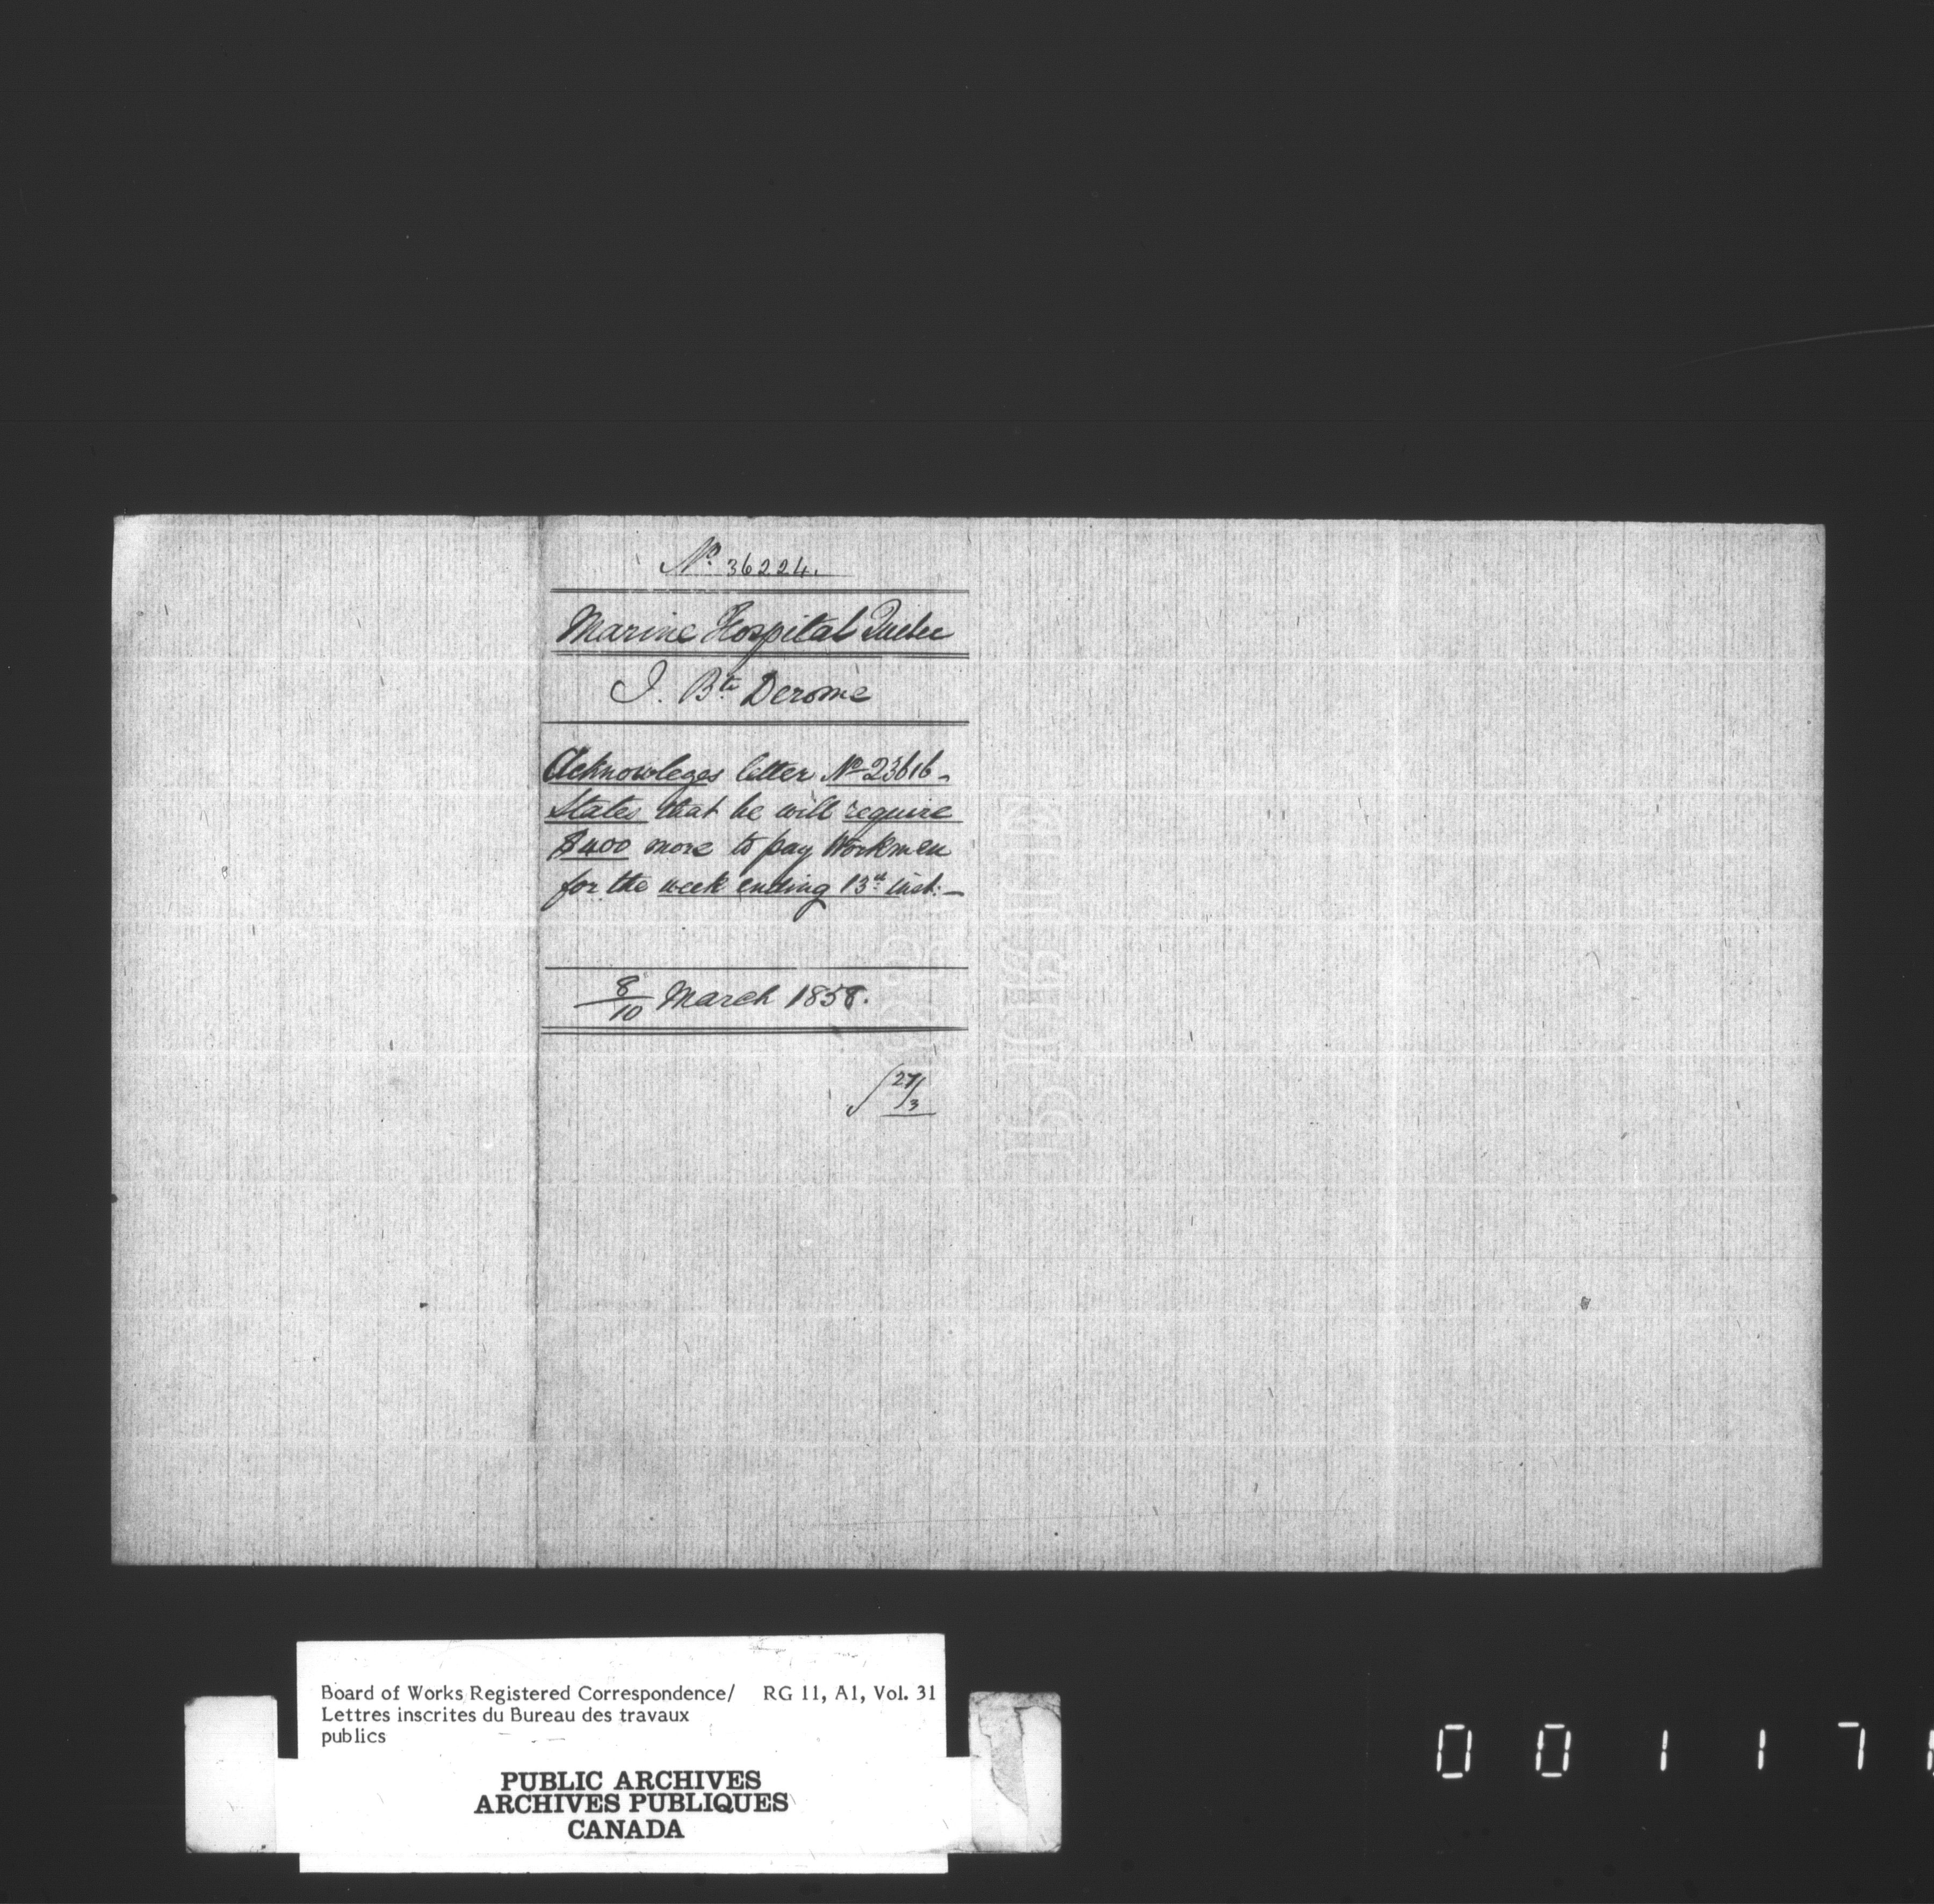 No. 36224.
Marine Hospital Quebec
J. Bte Derome
Acknowleges letter No 23616 -
States that he will require
$400 more to pay Workmen
for the week ending 13th inst: -
8/10 March 1858.
27/3
Board of Works Registered Correspondence/ RG 11, A1, Vol. 31
Lettres inscrites du Bureau des travaux
publics
PUBLIC ARCHIVES
ARCHIVES PUBLIQUES
CANADA
0 0 1 1 7